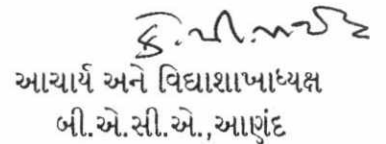 આચાર્ય અને વિદ્યાશાખાધ્યક્ષ
બી.એ.સી.એ.,આણંદ